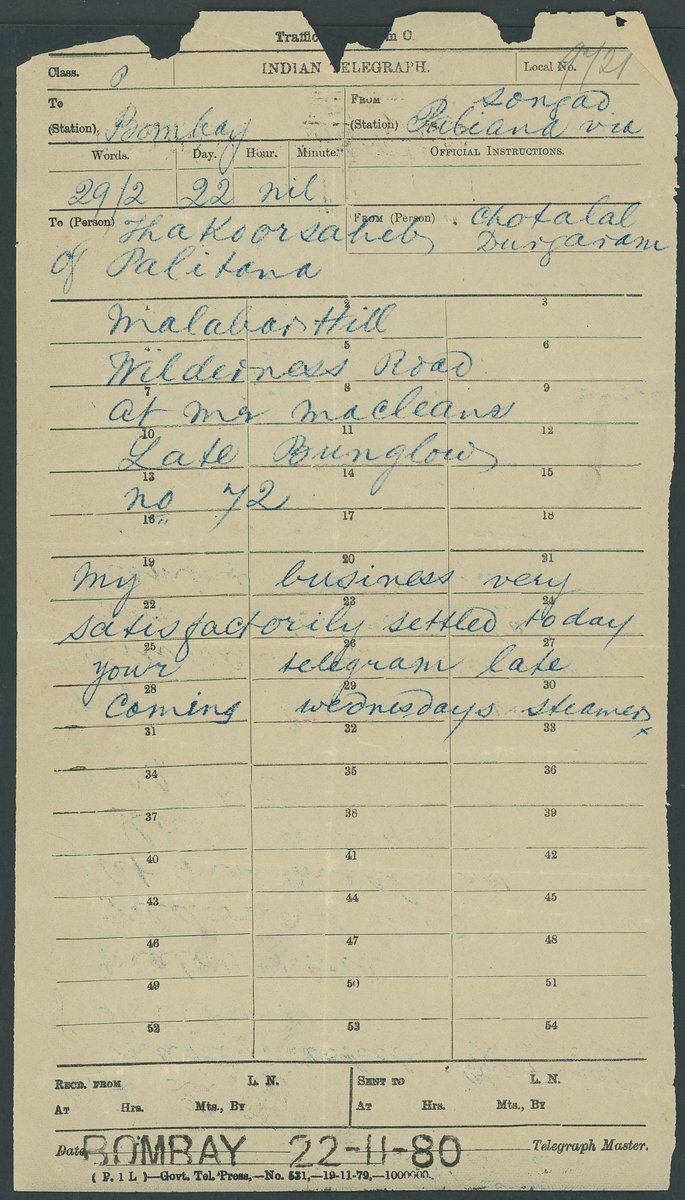 Traffic m C
Class. P INDIAN TELEGRAPH. Local No. /21
To From Songad
(Station) Bombay (Station) via
Words. Day. Hour. Minute. Official Instructions.
29/2 22 nil
To (Person) Thakoorsaheb From (Person) Chotalal
of Palitana Durgaram
2 3
Malabar Hill
5 6
Wilderness Road
7 8 9
at Mr Macleans
10 11 12
Late Bunglow
13 14 15
no 72
16 17 18
19 20 21
My business very
22 23 24
satisfactorily settled today
25 26 27
your telegram late
28 29 30
Coming wednesdays steamer
31 32 33
34 35 36
37 38 39
40 41 42
43 44 45
46 47 48
49 50 51
52 53 54
Recd. from L. N. Sent to L. N.
At Hrs. Mts., By At Hrs. Mts., By
Date BOMBAY 22-11-80 Telegraph Master.
( P. 1 L )—Govt. Tel. Press,—No. 531,—19-11-79,—1000000.